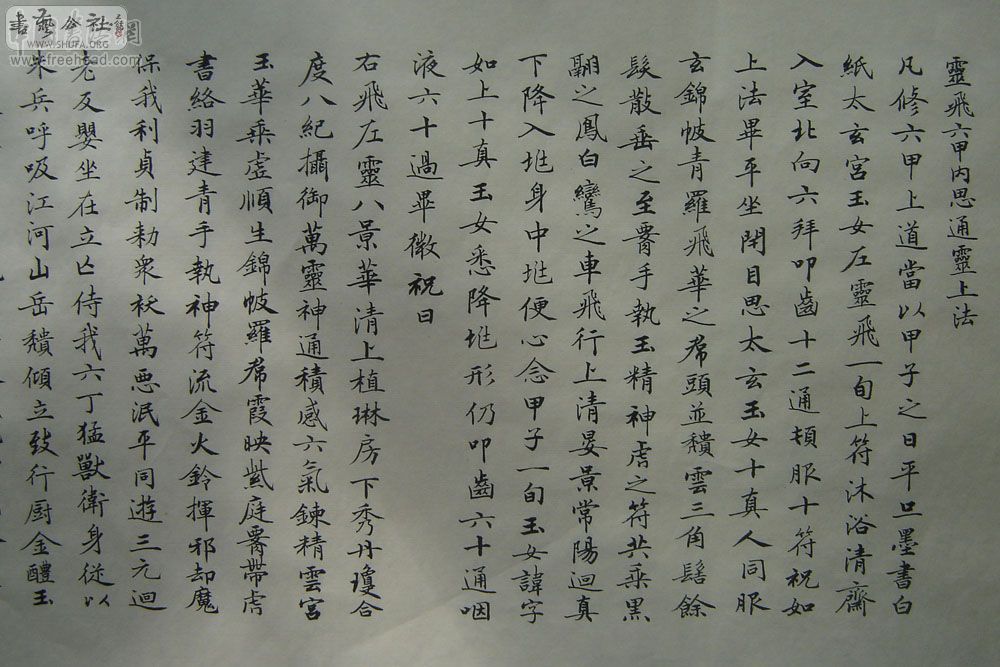 書藝公社
WWW.SHUFA.ORG
www.freehead.com
靈飛六甲內思通靈上法
凡修六甲上道當以甲子之日平旦墨書白
紙太玄宮玉女左靈飛一旬上符沐浴清齋
入室北向六拜叩齒十二通頓服十符祝如
上法畢平坐閉目思太玄玉女十真人同服
玄錦帔青羅飛華之帬頭並頹雲三角髻餘
髮散垂之至腰手執玉精神虎之符共乘黑
翮之鳳白鸞之車飛行上清晏景常陽迴真
下降入兆身中兆便心念甲子一旬玉女諱字
如上十真玉女悉降兆形仍叩齒六十通咽
液六十過畢微祝曰
右飛左靈八景華清上植琳房下秀丹瓊合
度八紀攝御萬靈神通積感六氣鍊精雲宮
玉華乘虛順生錦帔羅帬霞映紫庭腰帶虎
書絡羽建青手執神符流金火鈴揮邪却魔
保我利貞制勑眾袄萬惡泯平同遊三元迴
老反嬰坐在立亡侍我六丁猛獸衛身從以
朱兵呼吸江河山岳頹傾立致行廚金醴玉